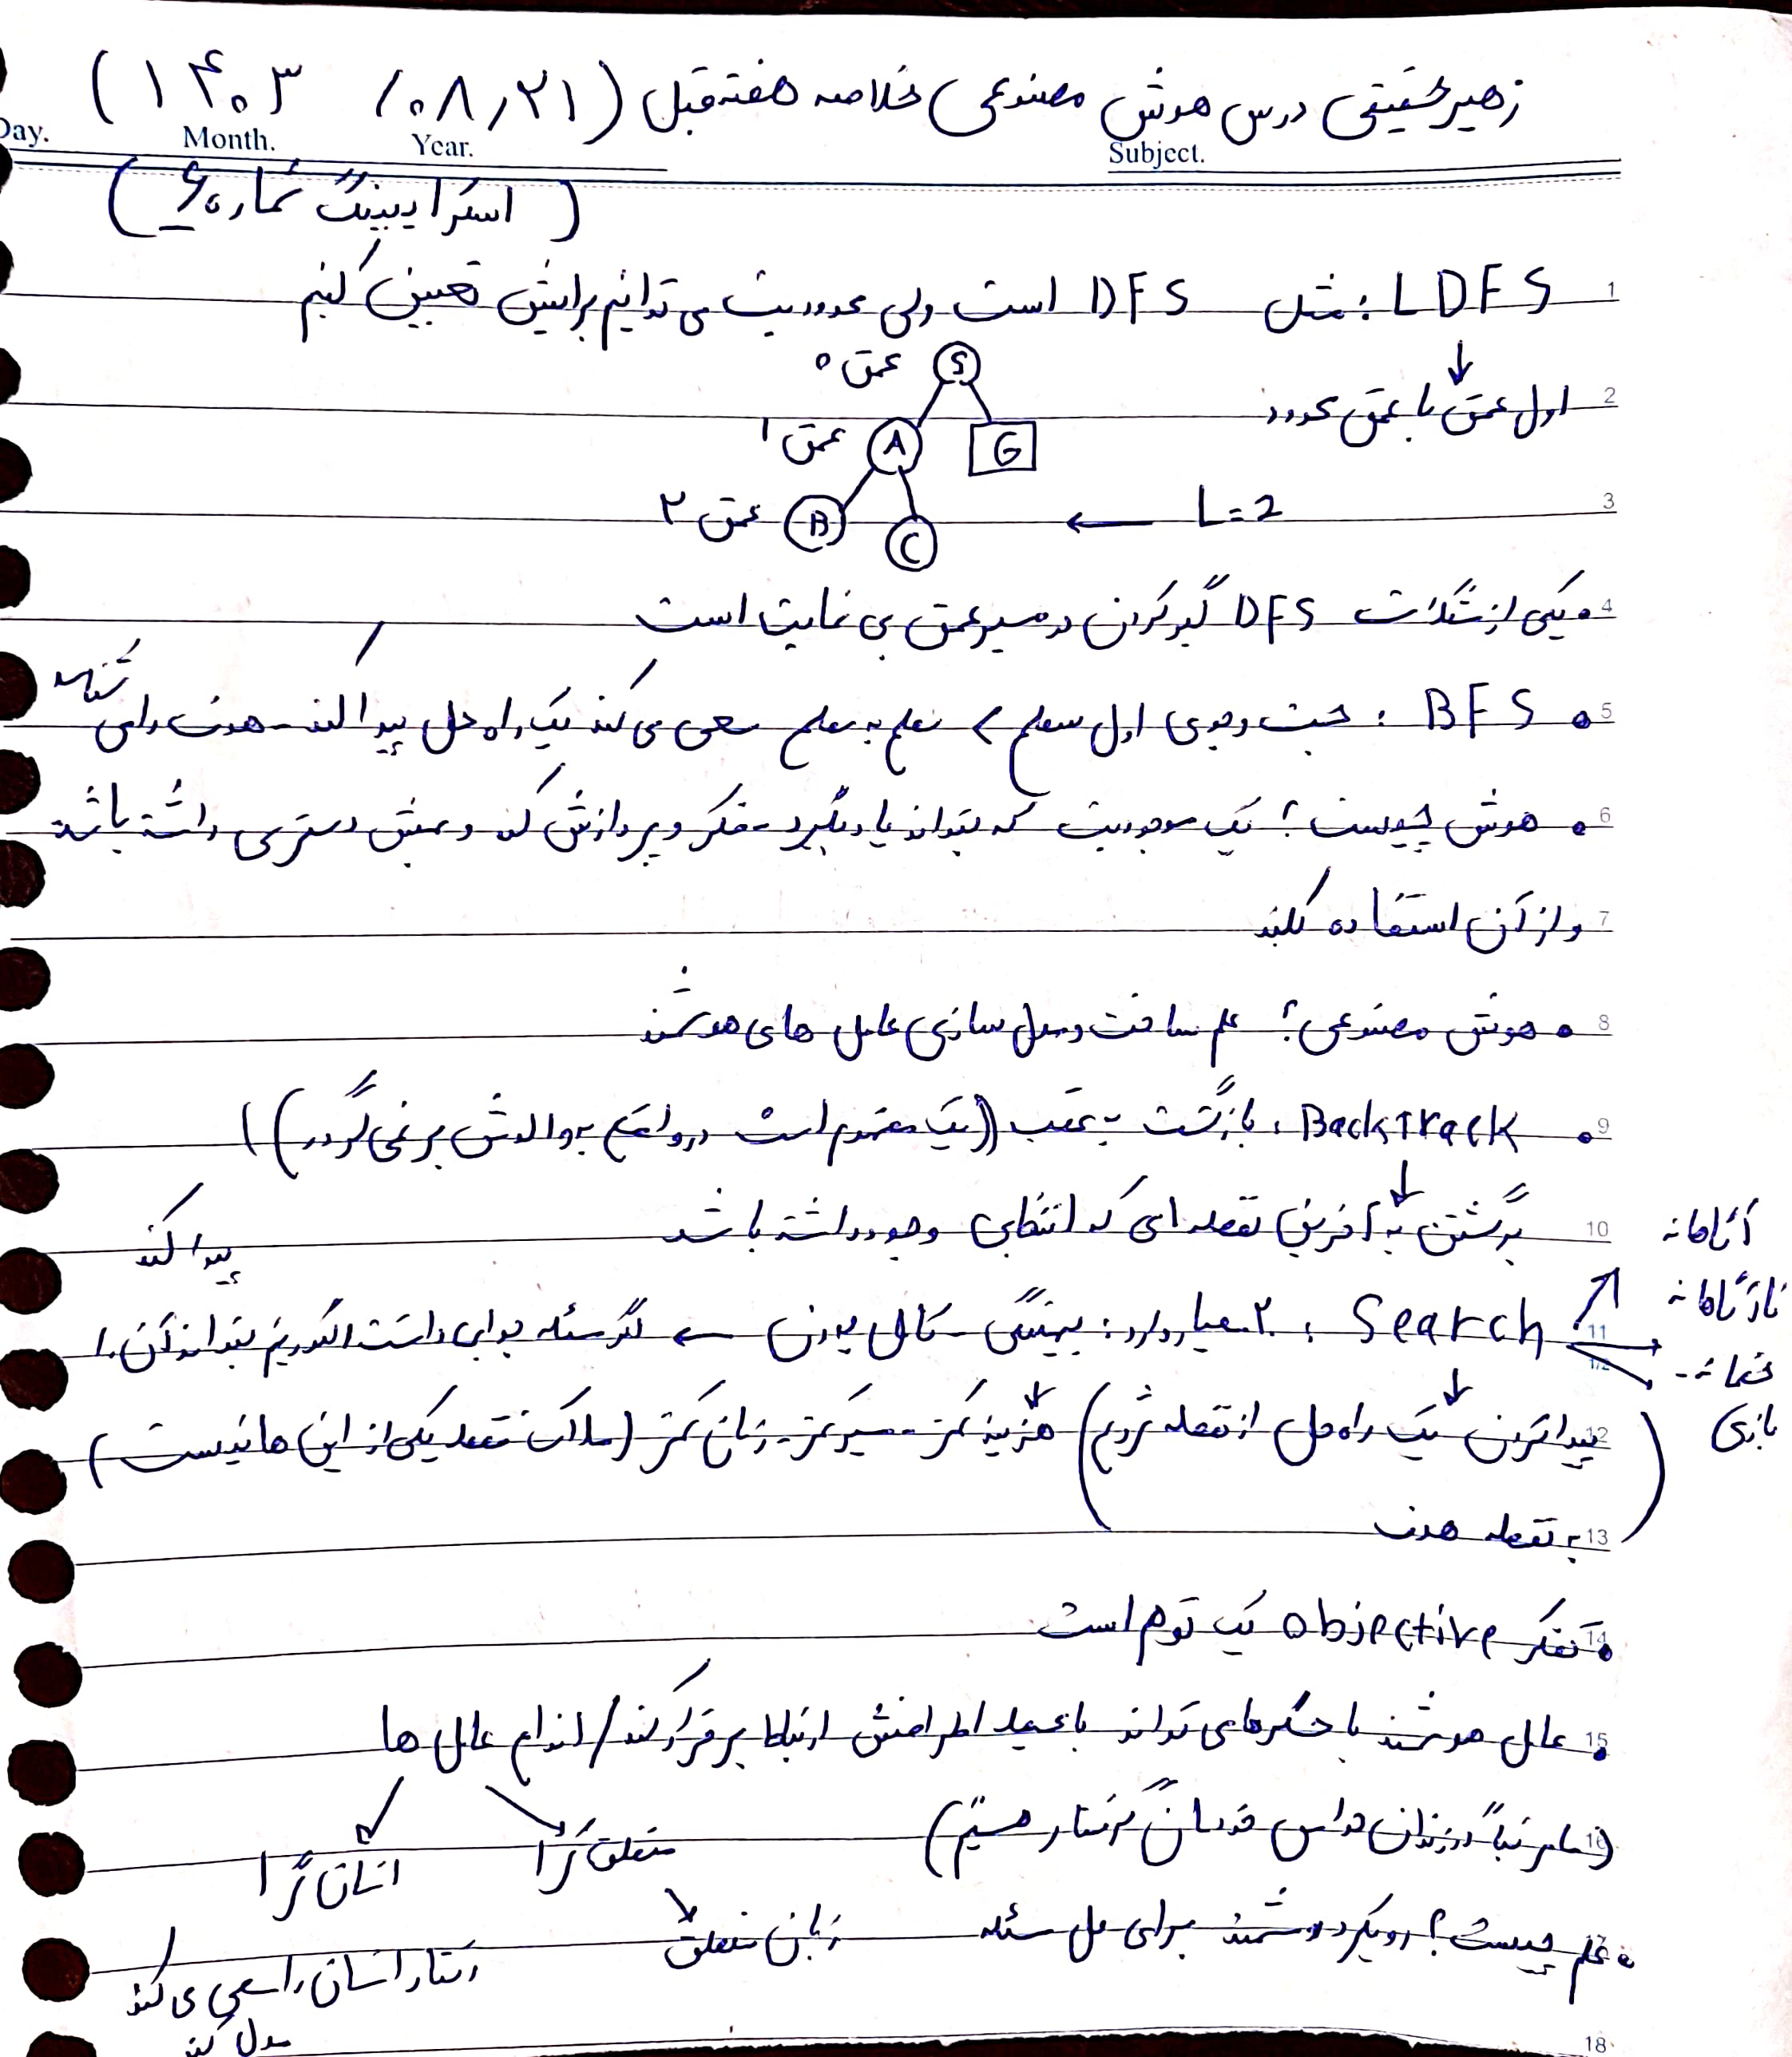 زهیر حقیقی درس هوش مصنوعی خلاصه هفته قبل (۱۴۰۳ /۰۸/۲۱)
Day. Month. Year. Subject.
(اسکرایبینگ شماره ۶)
1 LDFS : مثل DFS است ولی محدودیت می توانیم برایش تعیین کنیم
↓
2 اول عمق با عمق محدود
S عمق ۰
A G عمق ۱
3 B C عمق ۲ ← L=2
4 • یکی از مشکلات DFS گیر کردن در مسیر عمق بی نهایت است
5 • BFS : جست وجوی اول سطح > سطح به سطح سعی می کند یک راه حل پیدا کند - هدف را می شناسد
6 • هوش چیست؟ یک موجودیت که بتواند یاد بگیرد - فکر و پردازش کند و بهش دسترسی داشته باشد
7 و از آن استفاده کند
8 • هوش مصنوعی؟ علم ساخت و مدل سازی عامل های هوشمند
9 • BackTrack : بازگشت به عقب ((یک مفهوم است در واقع به والدش بر نمی گردد))
↓
10 برگشتن به آخرین نقطه ای که انتخابی وجود داشته باشد
11 Search : ۲ معیار دارد : بهینگی - کامل بودن ← اگر مسئله جوابی داشت الگوریتم بتواند آن را پیدا کند
آگاهانه
ناآگاهانه
خصمانه -
بازی
12 (پیدا کردن یک راه حل از نقطه شروع) هزینه کمتر - مسیر کمتر - زمان کمتر (ملاک فقط یکی از این ها نیست)
13 به نقطه هدف
14 • تفکر objective یک توهم است
15 • عامل هوشمند با حسگرها می تواند با محیط اطرافش ارتباط برقرار کند / اندام عامل ها
16 (ما هم در زندان حواس خودمان گرفتار هستیم) منطق گرا انسان گرا
17 • علم چیست؟ رویکرد روشمند برای حل مسئله زبان منطق رفتار انسان را سعی می کند
مدل کند
18